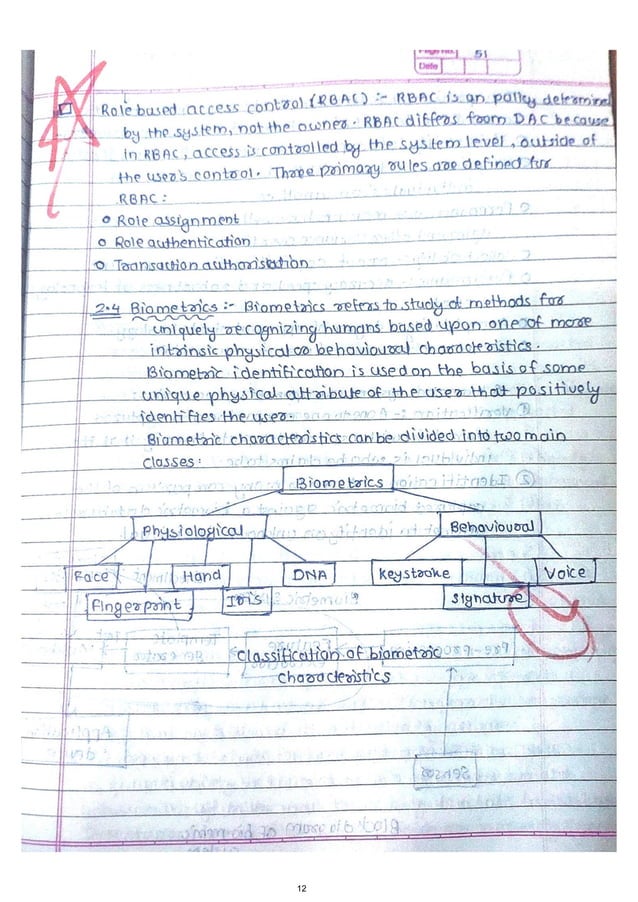 Page No. 51
Date
Role bused access control (RBAC) :- RBAC is an policy determined
by the system, not the owner. RBAC differs from DAC because
in RBAC, access is controlled by the system level, outside of
the user's control. Three primary rules are defined for
RBAC :
Role assignment
Role authentication
Transaction authorisation
2.4 Biometrics :- Biometrics refers to study of methods for
uniquely recognizing humans based upon one of more
intrinsic physical or behavioural characteristics.
Biometric identification is used on the basis of some
unique physical attribute of the user that positively
identifies the user.
Biometric characteristics can be divided into two main
classes:
Biometrics
Physiological Behavioural
Face Hand DNA Keystroke Voice
Fingerprint Iris Signature
Classification of biometric
characteristics
12